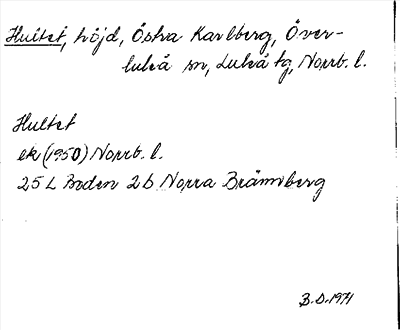 Hultet, höjd, Östra Karlberg, Över-
luleå sn, Luleå tg, Norrb. l.
Hultet
ek (1950) Norrb. l.
25 L Boden 2 b Norra Brännberg
B.D. 1971